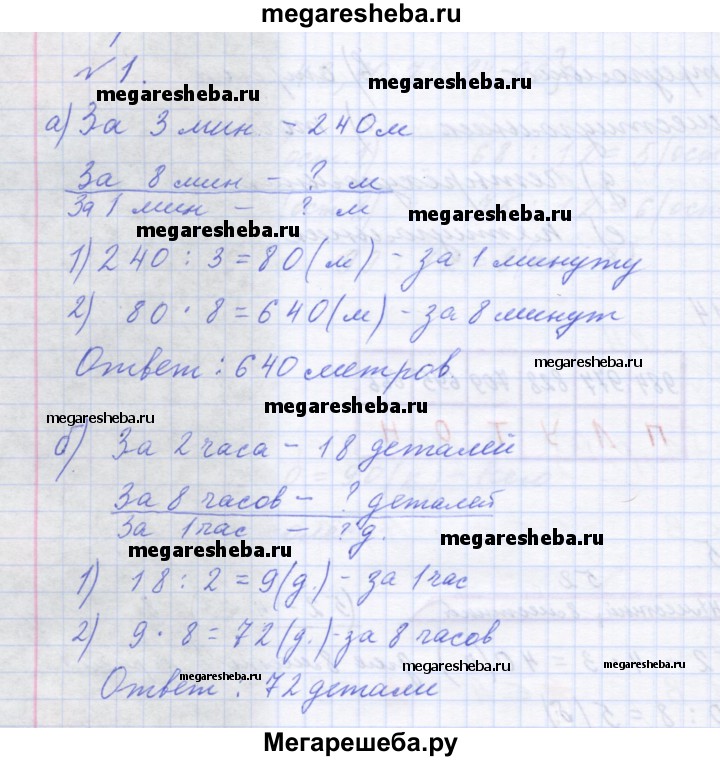 megaresheba.ru
№1.
megaresheba.ru megaresheba.ru
а) За 3 мин - 240 м
За 8 мин - ? м
За 1 мин - ? м megaresheba.ru
megaresheba.ru
1) 240 : 3 = 80 (м) - за 1 минуту
2) 80 · 8 = 640 (м) - за 8 минут
Ответ : 640 метров. megaresheba.ru
megaresheba.ru megaresheba.ru
б) За 2 часа - 18 деталей
За 8 часов - ? деталей
За 1 час - ? д.
megaresheba.ru megaresheba.ru
1) 18 : 2 = 9 (д.) - за 1 час
2) 9 · 8 = 72 (д.) - за 8 часов
megaresheba.ru megaresheba.ru megaresheba.ru
Ответ : 72 детали
Мегарешеба.ру